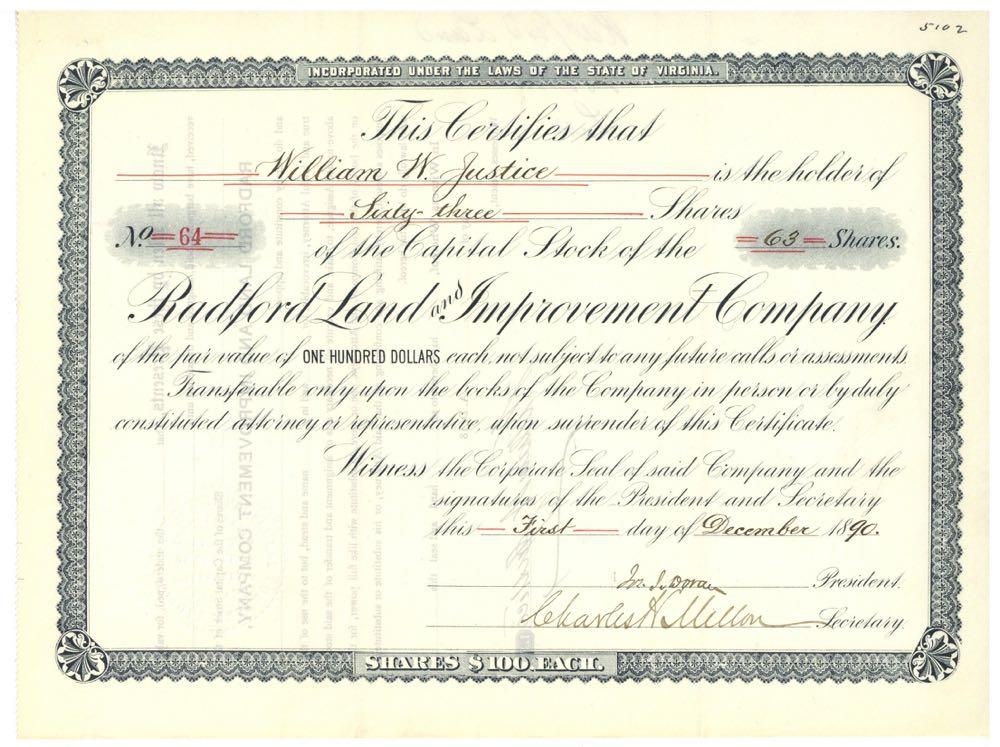 5102
INCORPORATED UNDER THE LAWS OF THE STATE OF VIRGINIA.
This Certifies that
William W. Justice is the holder of
Sixty-three Shares
No. 64 of the Capital Stock of the 63 Shares.
Radford Land and Improvement Company
of the par value of ONE HUNDRED DOLLARS each, not subject to any future calls or assessments
Transferable only upon the books of the Company in person or by duly
constituted attorney or representative, upon surrender of this Certificate.
Witness the Corporate Seal of said Company and the
signatures of the President and Secretary
this First day of December 1890.
Jos. I. Doran President.
Charles H. Mellon Secretary.
SHARES $100. EACH.